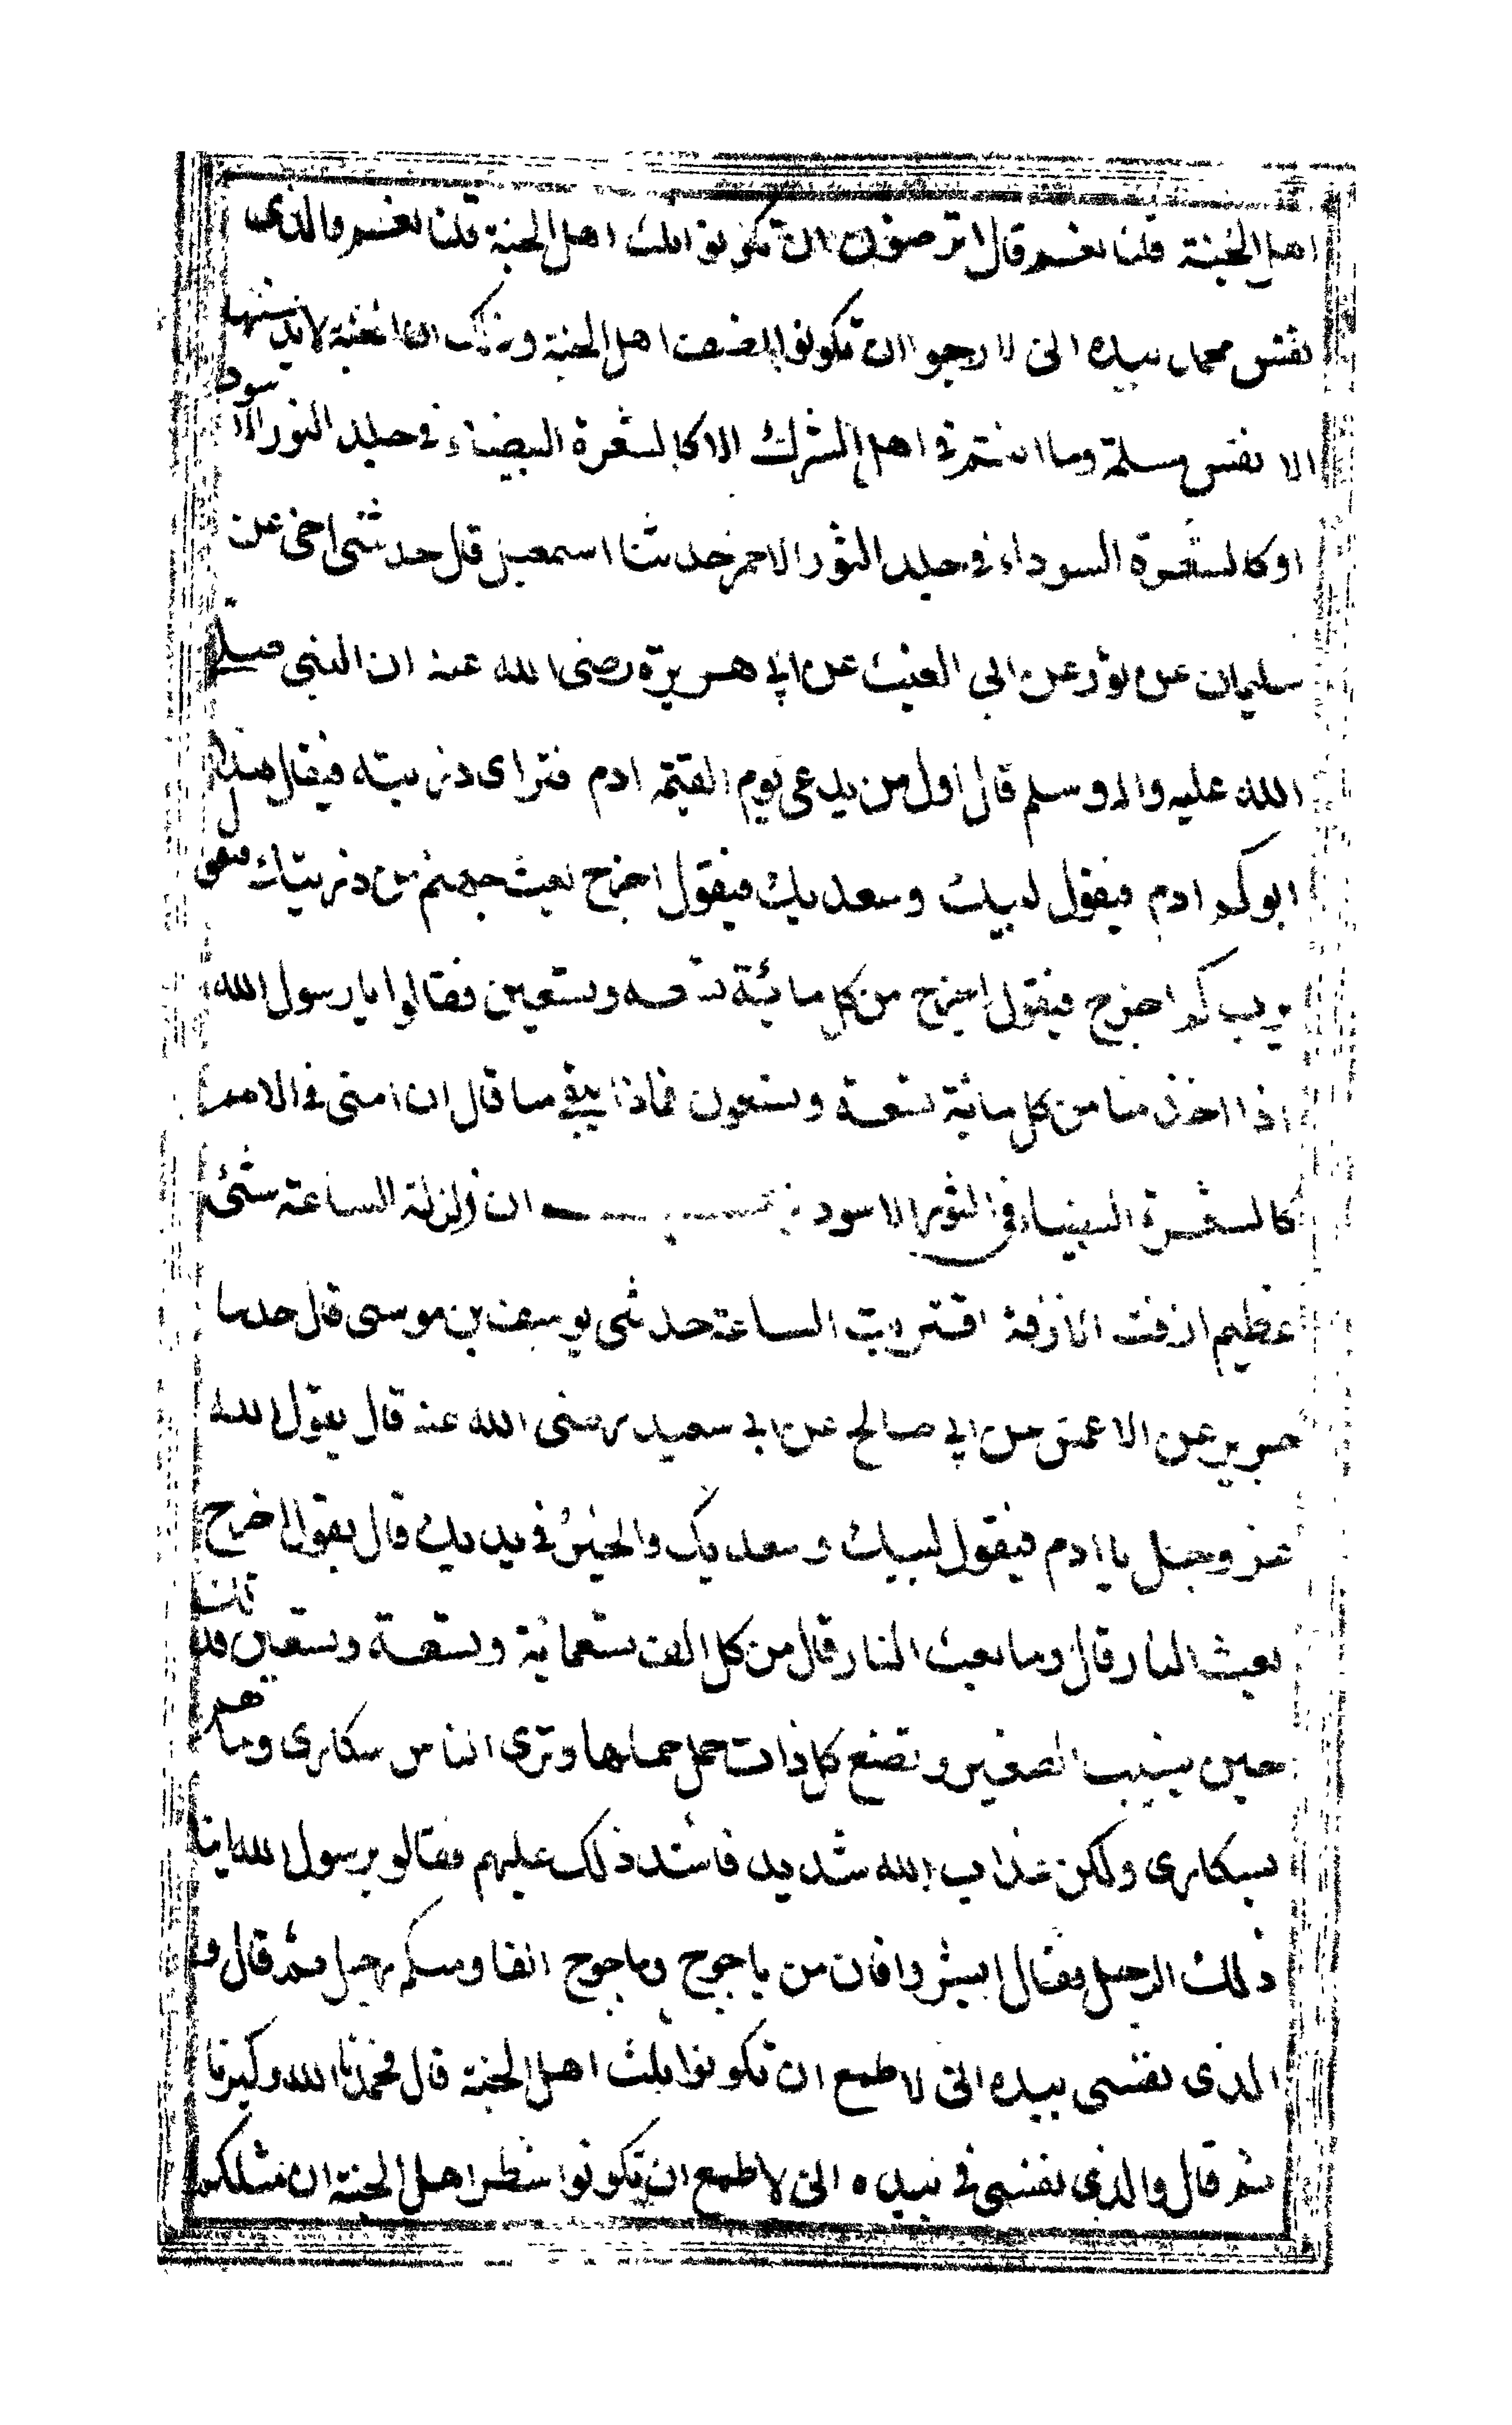 اهل الجنة قلنا نعم قال اترضون ان تكونوا ثلث اهل الجنة قلنا نعم والذى
نفس محمد بيده انى لارجوا ان تكونوا نصف اهل الجنة وذلك ان الجنة لا يدخلها
الا نفس مسلمة وما انتم فى اهل الشرك الا كالشعرة البيضاء فى جلد الثور الاسود
او كالشعرة السوداء فى جلد الثور الاحمر حدثنا اسمعيل قال حدثنى اخى عن
سليمان عن ثور عن ابى الغيث عن ابى هريرة رضى الله عنه ان النبى صلى
الله عليه واله وسلم قال اول من يدعى يوم القيمة ادم فتراى ذريته فيقال هذا
ابوكم ادم فيقول لبيك وسعديك فيقول اخرج بعث جهنم من ذريتك فيقول
يرب كم اخرج فيقول اخرج من كل مائة تسعه وتسعين فقالوا يا رسول الله
اذا اخذ منا من كل مائة تسعة وتسعون فماذا يبقى منا قال ان امتى فى الامم
كالشعرة البيضاء فى الثور الاسود ان زلزلة الساعة شئ
عظيم ازفت الازفة اقتربت الساعة حدثنى يوسف بن موسى قال حدثنا
جرير عن الاعمش عن ابى صالح عن ابى سعيد رضى الله عنه قال يقول الله
عز وجل يا ادم فيقول لبيك وسعديك والخير فى يديك قال يقول اخرج
بعث النار قال وما بعث النار قال من كل الف تسعمائة وتسعة وتسعين فذلك
حين يشيب الصغير وتضع كل ذات حمل حملها وترى الناس سكارى وما هم
بسكارى ولكن عذاب الله شديد فاشتد ذلك عليهم فقالو يرسول الله اينا
ذلك الرجل فقال ابشروا فان من ياجوج وماجوج الفا ومنكم رجل ثم قال و
الذى نفسى بيده انى لاطمع ان تكونوا ثلث اهل الجنة قال فحمدنا الله وكبرنا
ثم قال والذى نفسى فى بيده انى لاطمع ان تكونوا شطر اهل الجنة ان مثلكم